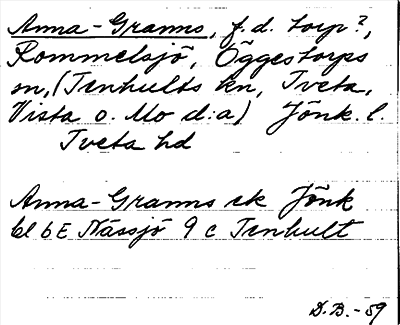 Anna-Granns, f.d. torp?,
Rommelsjö, Öggestorps
sn, (Tenhults kn, Tveta,
Vista o. Mo d:a) Jönk. l.
Tveta hd
Anna-Granns ek Jönk
bl 6E Nässjö 9 c Tenhult
D.B.-59